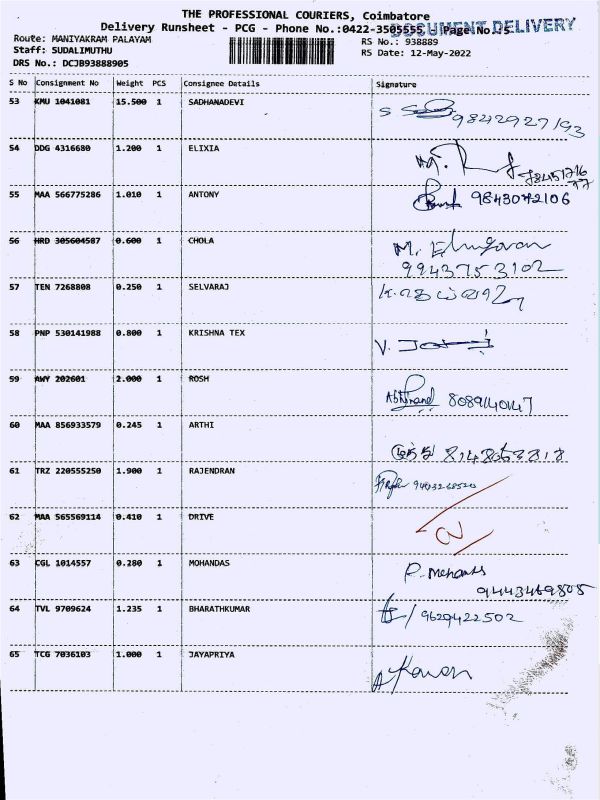 THE PROFESSIONAL COURIERS, Coimbatore
Delivery Runsheet - PCG - Phone No.:0422-3505555 Page No.:5
DOCUMENT DELIVERY
Route: MANIYAKRAM PALAYAM
RS No.: 938889
Staff: SUDALIMUTHU
RS Date: 12-May-2022
DRS No.: DCJB93888905
S No Consignment No Weight PCS Consignee Details Signature
53 KMU 1041081 15.500 1 SADHANADEVI 9842927193
54 DDG 4316680 1.200 1 ELIXIA
55 MAA 566775286 1.010 1 ANTONY 9843042106
56 HRD 305604587 0.600 1 CHOLA M. Elangovan
9943753102
57 TEN 7268808 0.250 1 SELVARAJ
58 PNP 530141988 0.800 1 KRISHNA TEX V.
59 AWY 202601 2.000 1 ROSH 8089140147
60 MAA 856933579 0.245 1 ARTHI
61 TRZ 220555250 1.900 1 RAJENDRAN
62 MAA 565569114 0.410 1 DRIVE
63 CGL 1014557 0.280 1 MOHANDAS P. Mohandas
9443469805
64 TVL 9709624 1.235 1 BHARATHKUMAR 9629422502
65 TCG 7036103 1.000 1 JAYAPRIYA